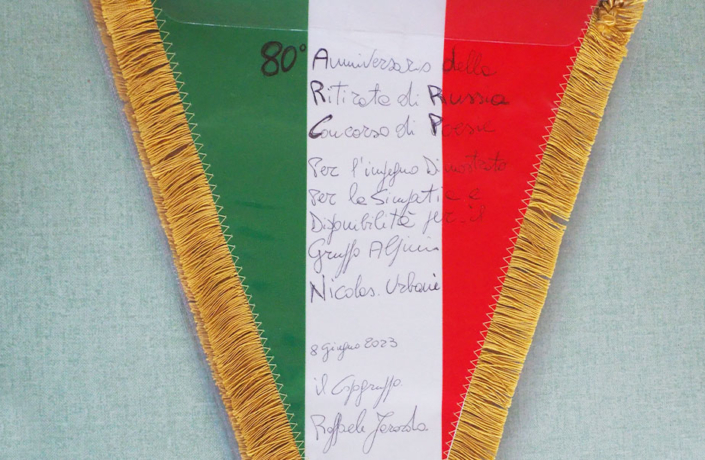 80° Anniversario della
Ritirata di Russia
Concorso di Poesie
Per l'impegno Dimostrato
Per la Simpatia e
Disponibilità per il
Gruppo Alpini
Nicolas. Urbani
8 giugno 2023
il Capogruppo
Raffaele